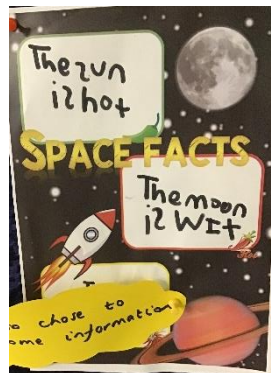 The zun
iz hot
SPACE FACTS
The moon
iz WIt
chose to
ome information